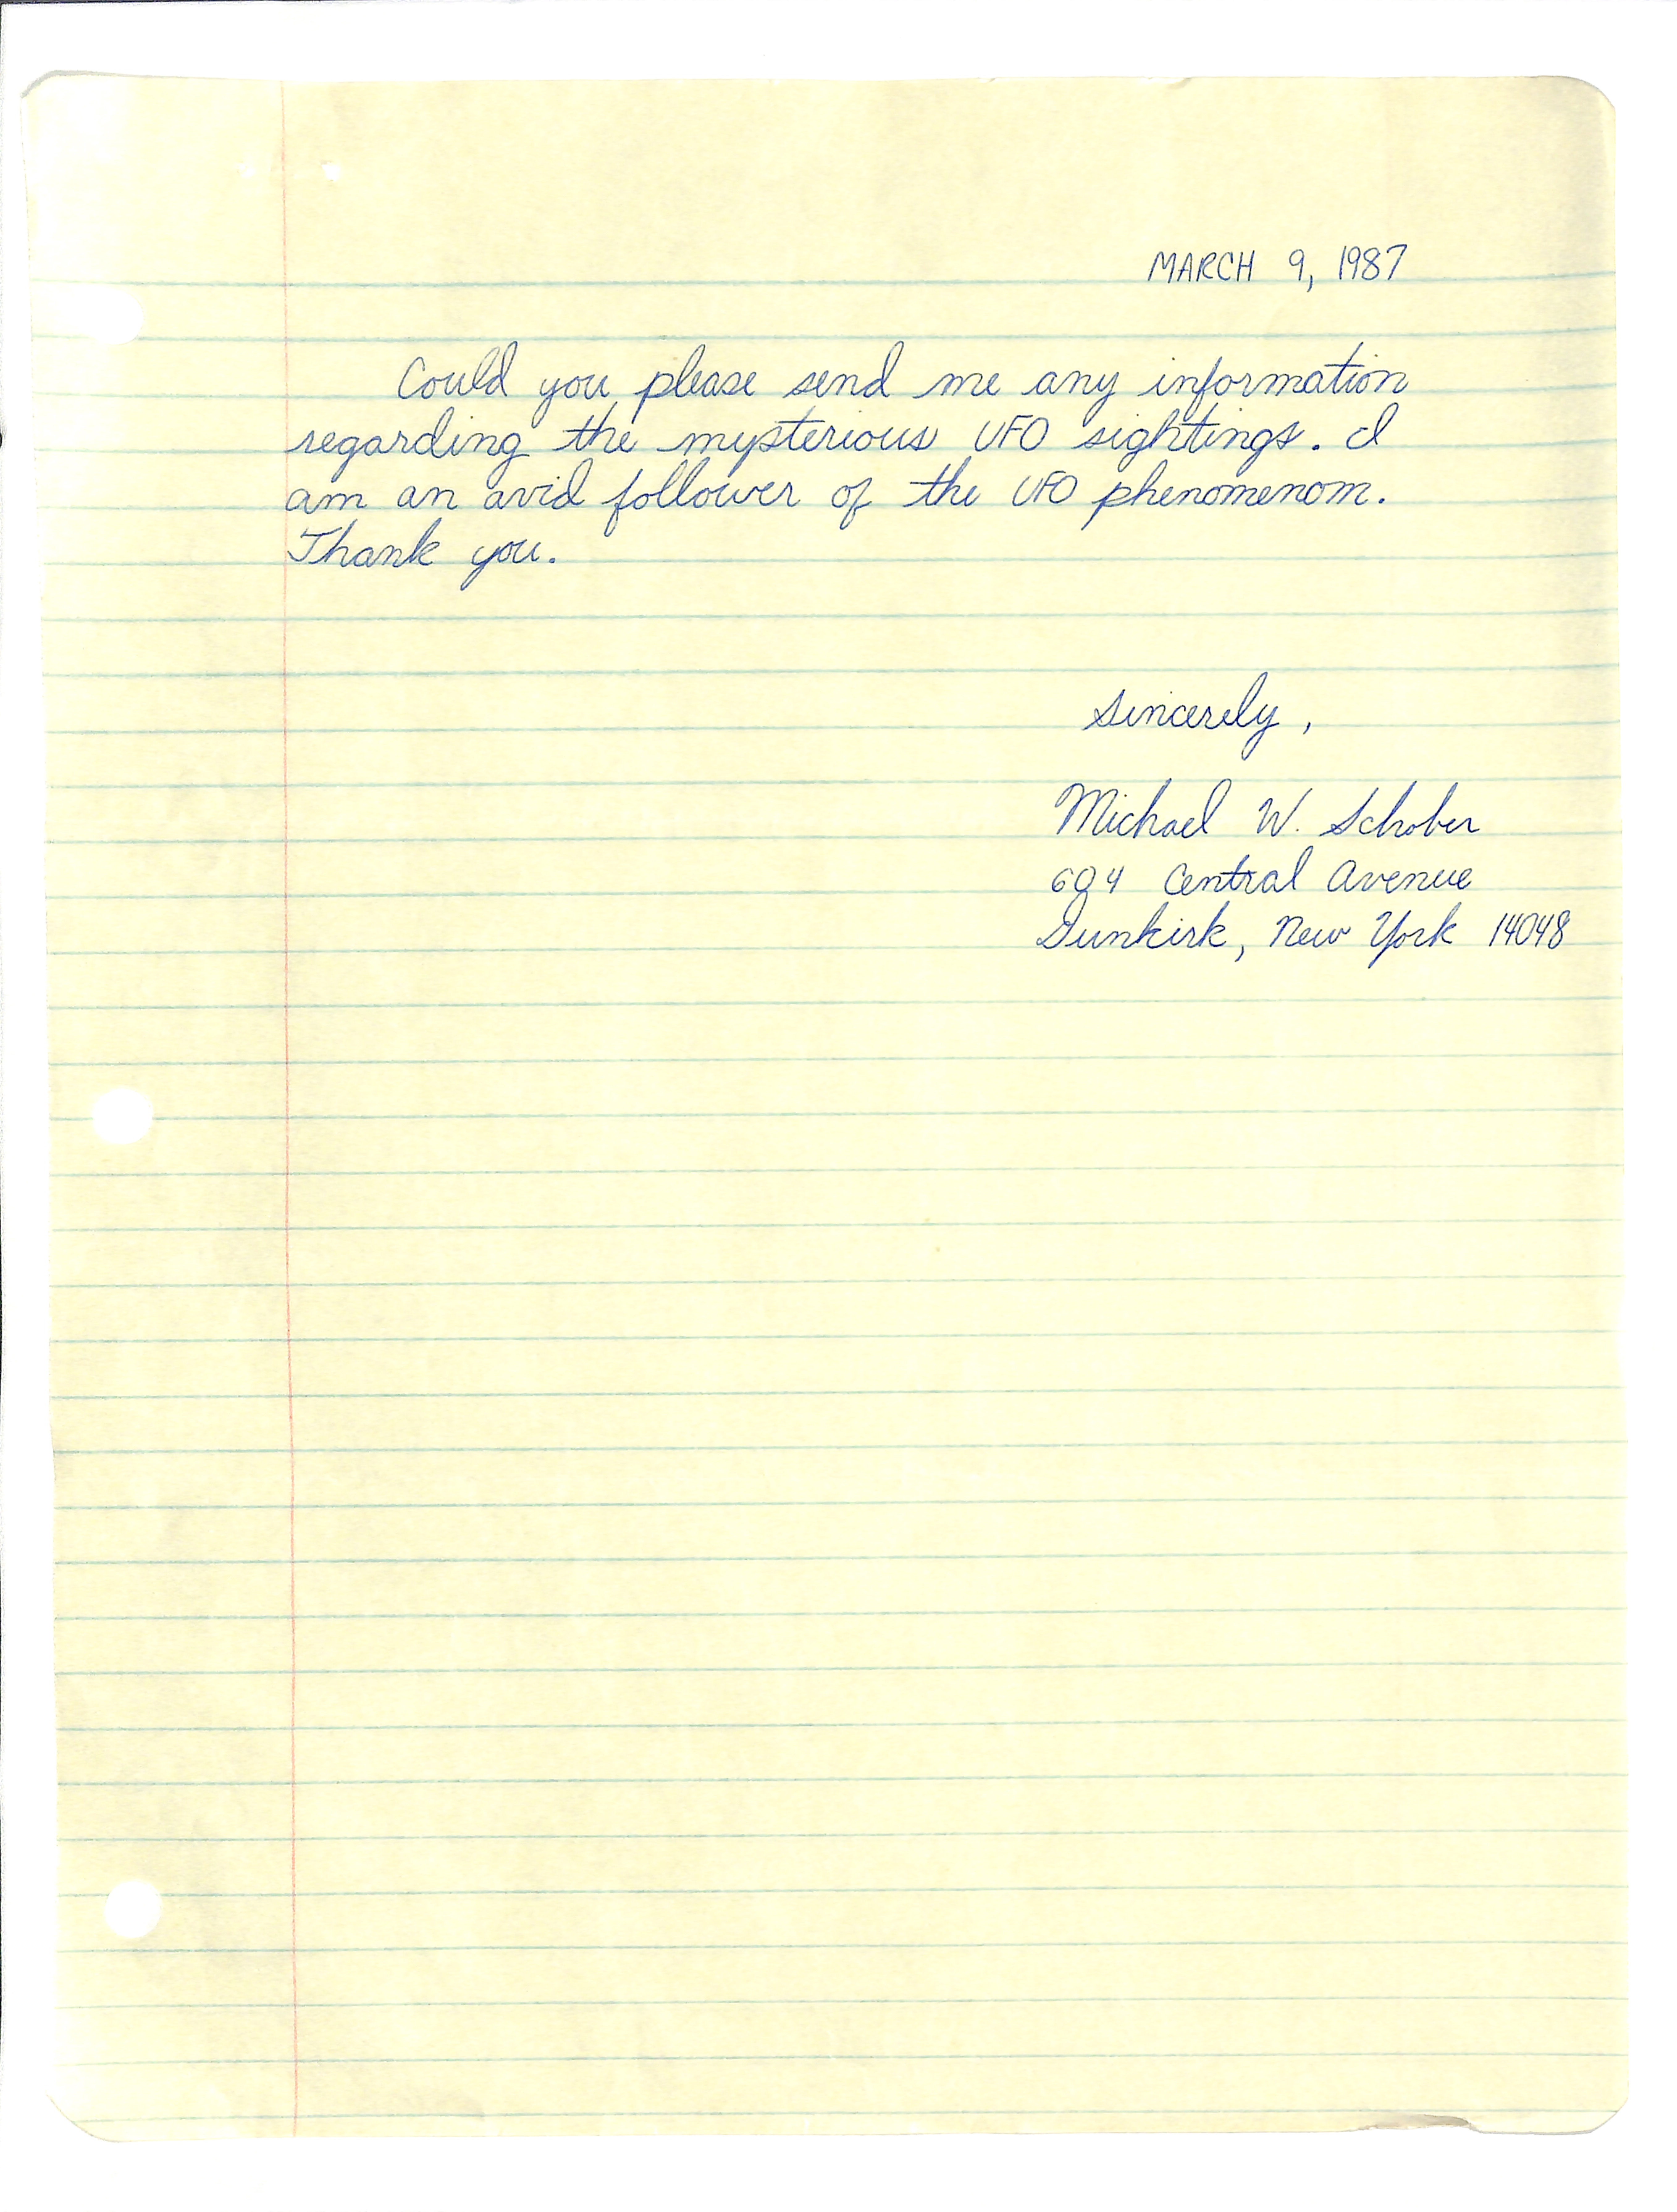 MARCH 9, 1987
Could you please send me any information
regarding the mysterious UFO sightings. I
am an avid follower of the UFO phenomenom.
Thank you.
Sincerely,
Michael W. Schober
Central Avenue
Dunkirk, New York 14048